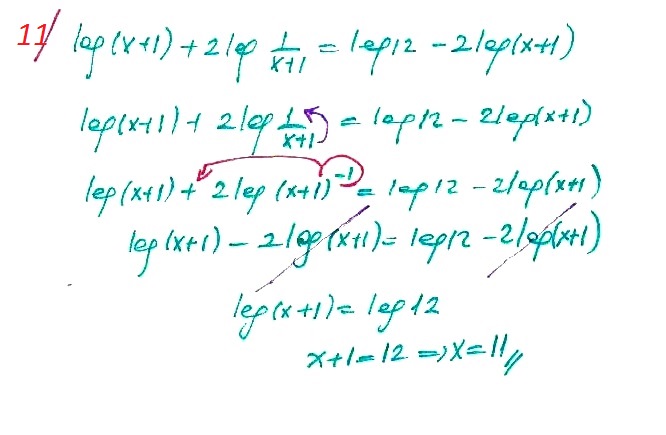 11/ log(x+1) + 2log 1/(x+1) = log12 - 2log(x+1)
log(x+1) + 2log 1/(x+1) = log12 - 2log(x+1)
log(x+1) + 2log (x+1)⁻¹ = log12 - 2log(x+1)
log(x+1) - 2log(x+1) = log12 - 2log(x+1)
log(x+1) = log12
x+1 = 12 ⇒ x = 11//